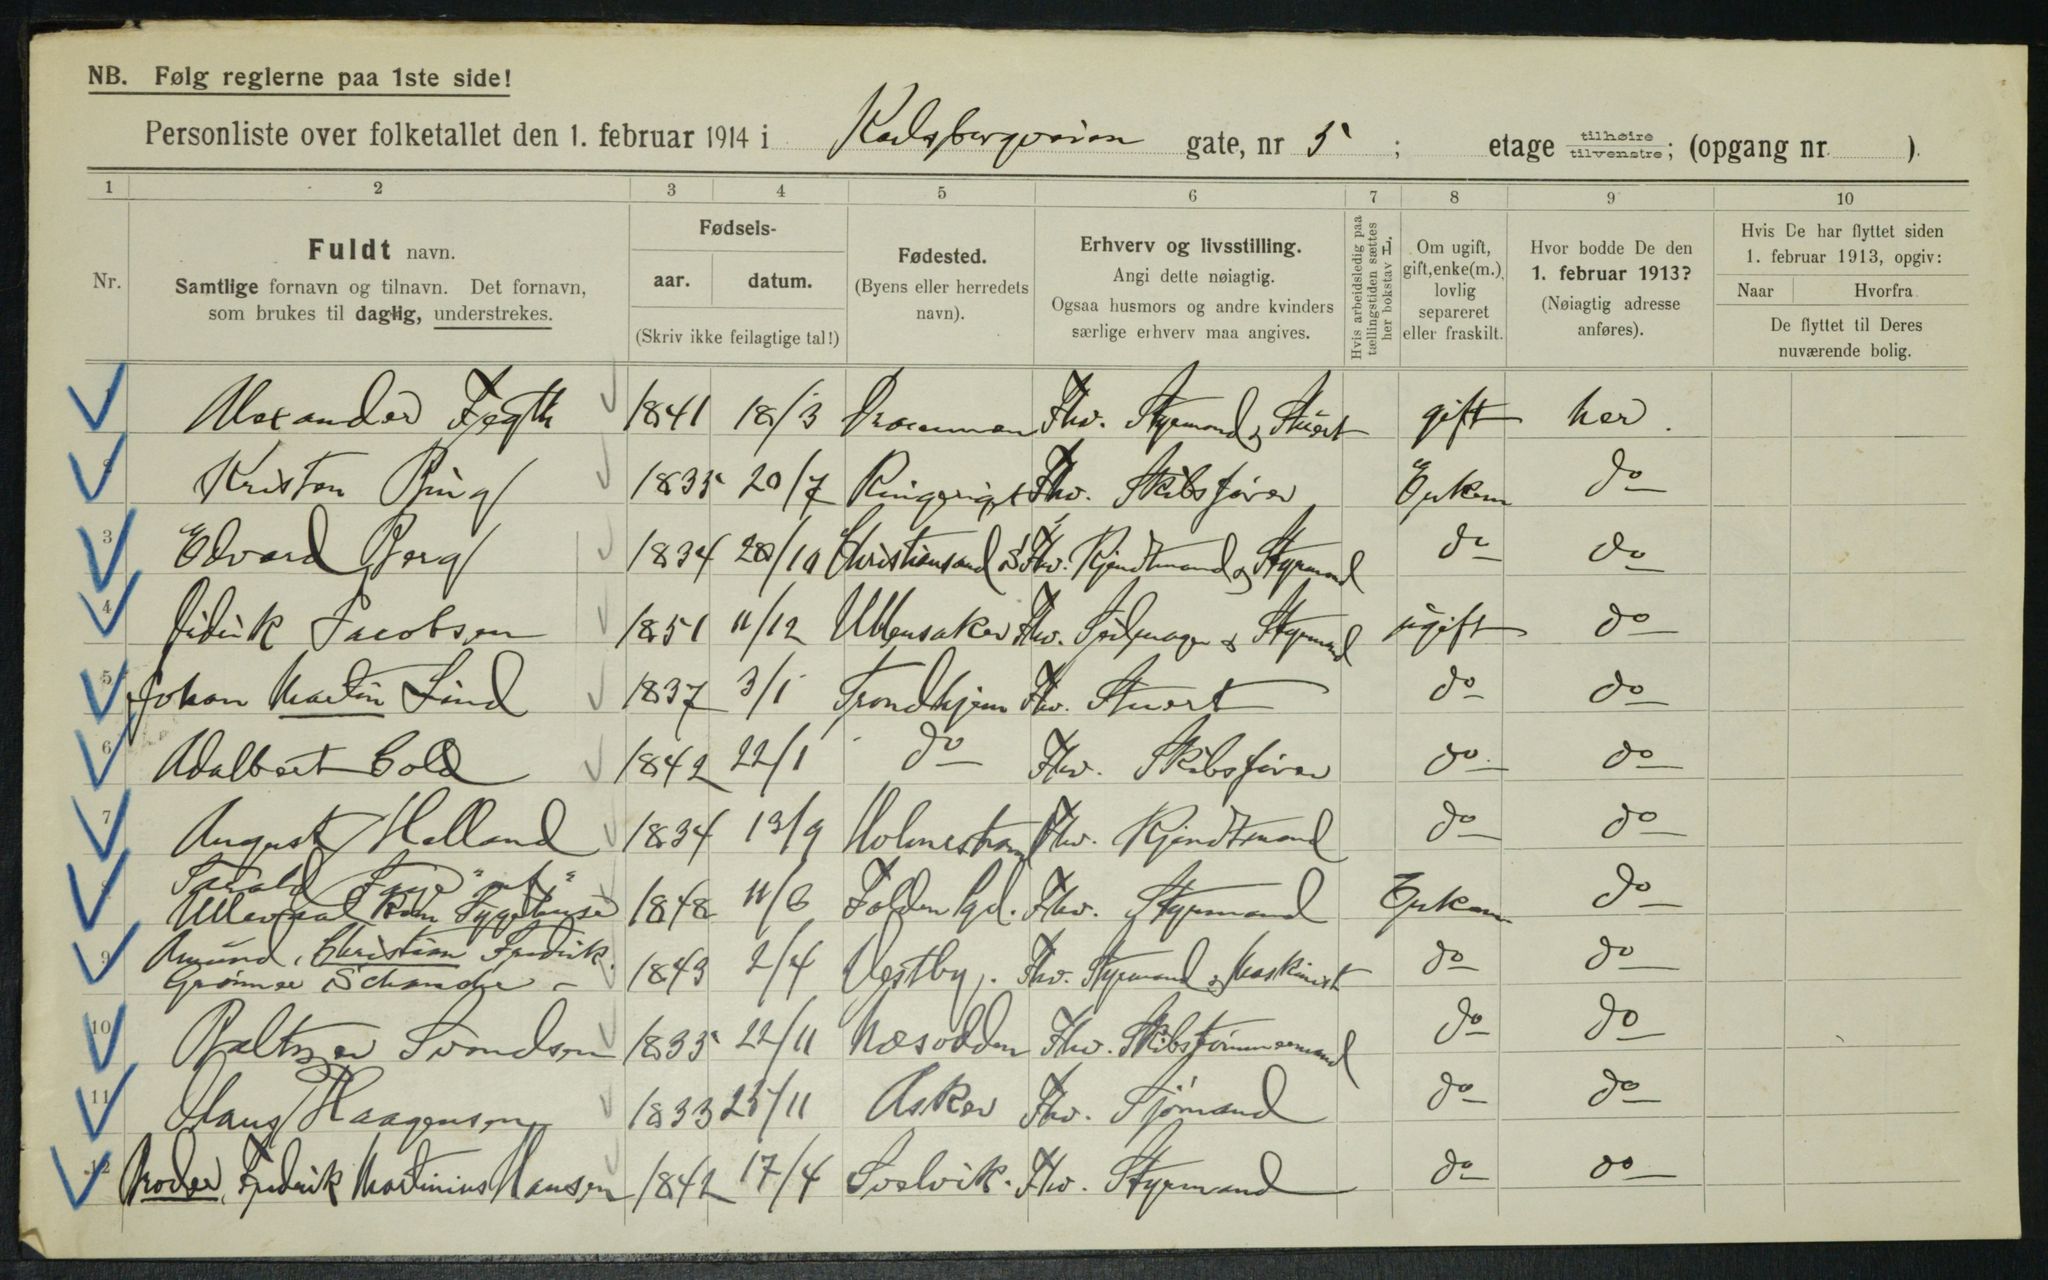 NB. Følg reglerne paa 1ste side!
Personliste over folketallet den 1. februar 1914 i gate, nr 5 ; etage tilhøire tilvenstre; (opgang nr. ).
1 2 3 4 5 6 7 8 9 10
Nr.
Fuldt navn.
Samtlige fornavn og tilnavn. Det fornavn,
som brukes til daglig, understrekes.
Fødsels-
aar. datum.
(Skriv ikke feilagtige tal!)
Fødested.
(Byens eller herredets
navn).
Erhverv og livsstilling.
Angi dette nøiagtig.
Ogsaa husmors og andre kvinders
særlige erhverv maa angives.
Hvis arbeidsledig paa
tællingstiden sættes
her bokstav L.
Om ugift,
gift, enke(m.),
lovlig
separeret
eller fraskilt.
Hvor bodde De den
1. februar 1913?
(Nøiagtig adresse
anføres).
Hvis De har flyttet siden
1. februar 1913, opgiv:
Naar Hvorfra
De flyttet til Deres
nuværende bolig.
1 Alexander Fegth 1841 18/3 Drammen Fhv. Styrmand & Stuert gift her.
2 Kristen Bing 1835 20/7 Ringerige Fhv. Skibsfører Enkem do
3 Edvard Berg 1834 28/10 Christiansand S Fhv. Kjendtmand & Styrmand do do
4 Didrik Jacobsen 1851 11/12 Ullensaker Fhv. Seilmager & Styrmand ugift do
5 Johan Martin Lind 1837 3/1 Trondhjem Fhv. Stuert do do
6 Adalbert Cold 1842 22/1 do Fhv. Skibsfører do do
7 August Helland 1834 13/9 Holmestrand Fhv. Kjendtmand do do
8 Tarald
Ullevaal Kom Sygehuse 1848 11/6 Folden Fhv. Styrmand Enkem do
9 Amund, Christian Fredrik.
Grønner Schanche 1843 2/4 Vestby. Fhv. Styrmand & Maskinist do do
10 Baltzer Svendsen 1835 22/11 Næsodden Fhv. Skibstømmermand do do
11 Hans Haagensen 1833 25/11 Asker Fhv. Sjømand do do
12 Broder, Fredrik Martinius Hansen 1842 17/4 Svelvik. Fhv. Styrmand do do